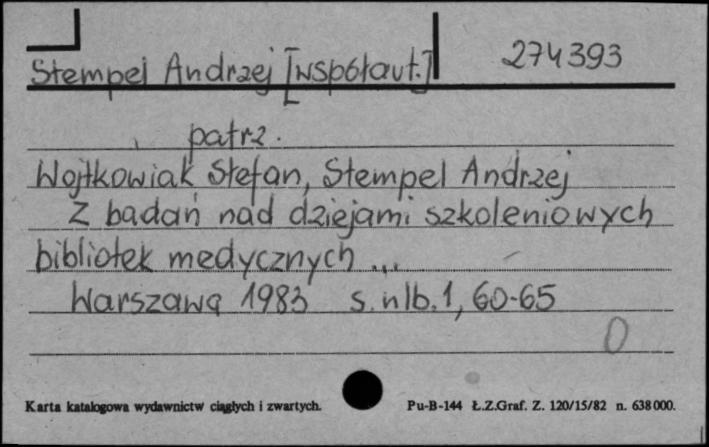 Stempel Andrzej [współaut.] 274393
patrz.
Wojtkowiak Stefan, Stempel Andrzej
Z badań nad dziejami szkoleniowych
bibliotek medycznych ...
Warszawa 1983 s. nlb. 1, 60-65
0
Karta katalogowa wydawnictw ciągłych i zwartych. Pu-B-144 Ł.Z.Graf. Z. 120/15/82 n. 638000.